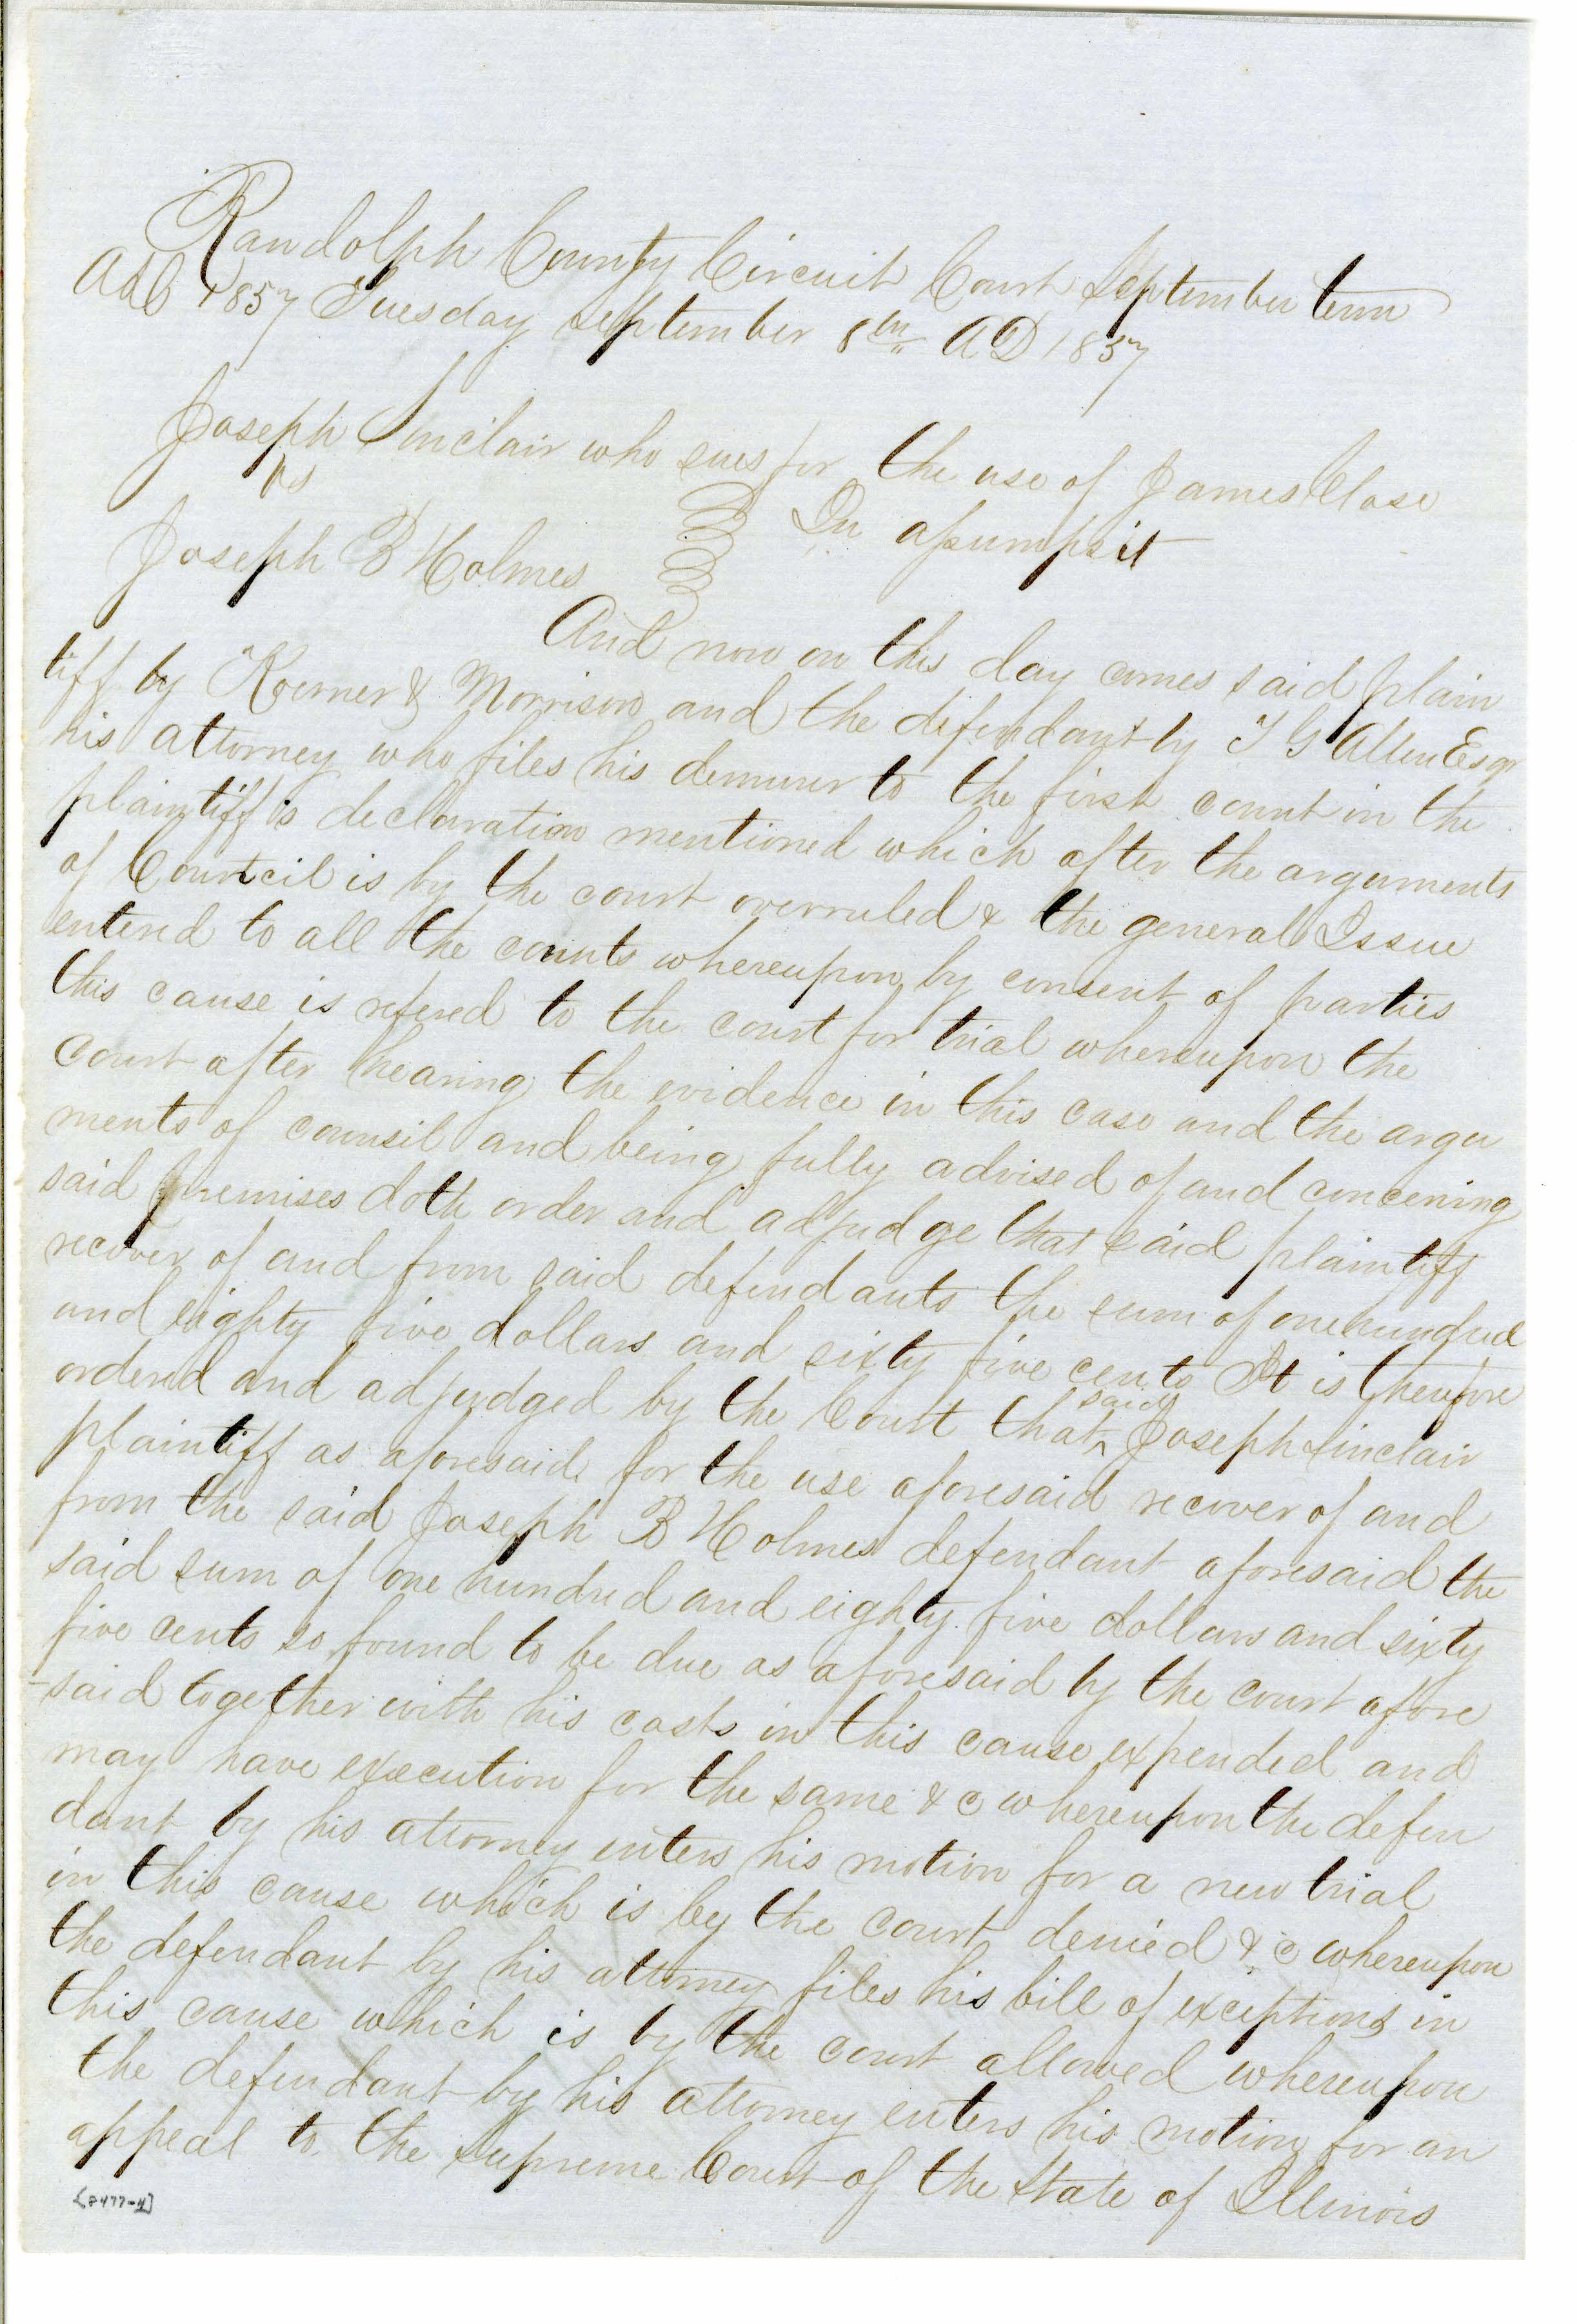 Randolph County Circuit Court September term
AD 1857 Tuesday September 8th AD 1857
Joseph Sinclair who sues for the use of James Close
vs
In assumpsit
Joseph B Holmes
And now on this day comes said plain
tiff by Koerner & Morrison and the defendant by T G Allen Esqr
his attorney who files his demurer to the first count in the
plaintiff's declaration mentioned which after the arguments
of Council is by the court overruled & the general Issue
entered to all the counts whereupon by consent of parties
this cause is refered to the court for trial whereupon the
Court after hearing the evidence in this case and the argu
ments of counsil and being fully advised of and concerning
said premises doth order and adjudge that said plaintiff
recover of and from said defendants the sum of one hundred
and eighty five dollars and sixty five cents It is therefore
ordered and adjudged by the Court that said Joseph Sinclair
plaintiff as aforesaid for the use aforesaid recover of and
from the said Joseph B Holmes defendant aforesaid the
said sum of one hundred and eighty five dollars and sixty
five cents so found to be due as aforesaid by the court afore
-said together with his costs in this cause expended and
may have execution for the same & c whereupon the defen
dant by his attorney enters his motion for a new trial
in this cause which is by the court denied & c whereupon
the defendant by his attorney files his bill of exceptions in
this cause which is by the court allowed whereupon
the defendant by his attorney enters his motion for an
appeal to the Supreme Court of the State of Illinois
[8477-4]